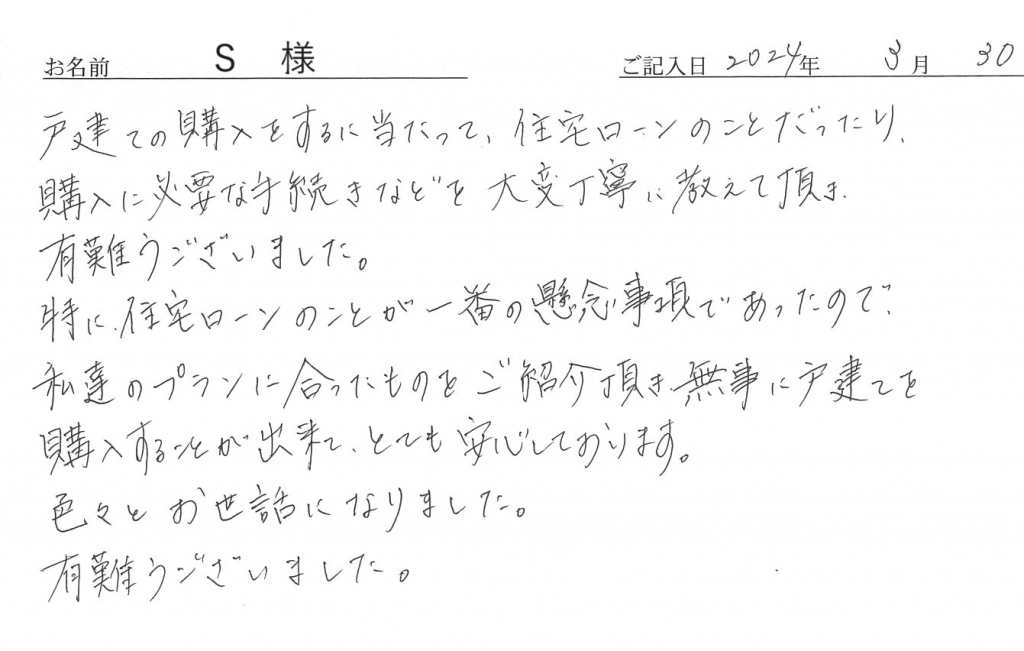 お名前 S 様 ご記入日 2024年 3月 30
戸建ての購入をするに当たって、住宅ローンのことだったり、
購入に必要な手続きなどを大変丁寧に教えて頂き、
有難うございました。
特に、住宅ローンのことが一番の懸念事項であったので、
私達のプランに合ったものをご紹介頂き、無事に戸建てを
購入することが出来て、とても安心しております。
色々とお世話になりました。
有難うございました。